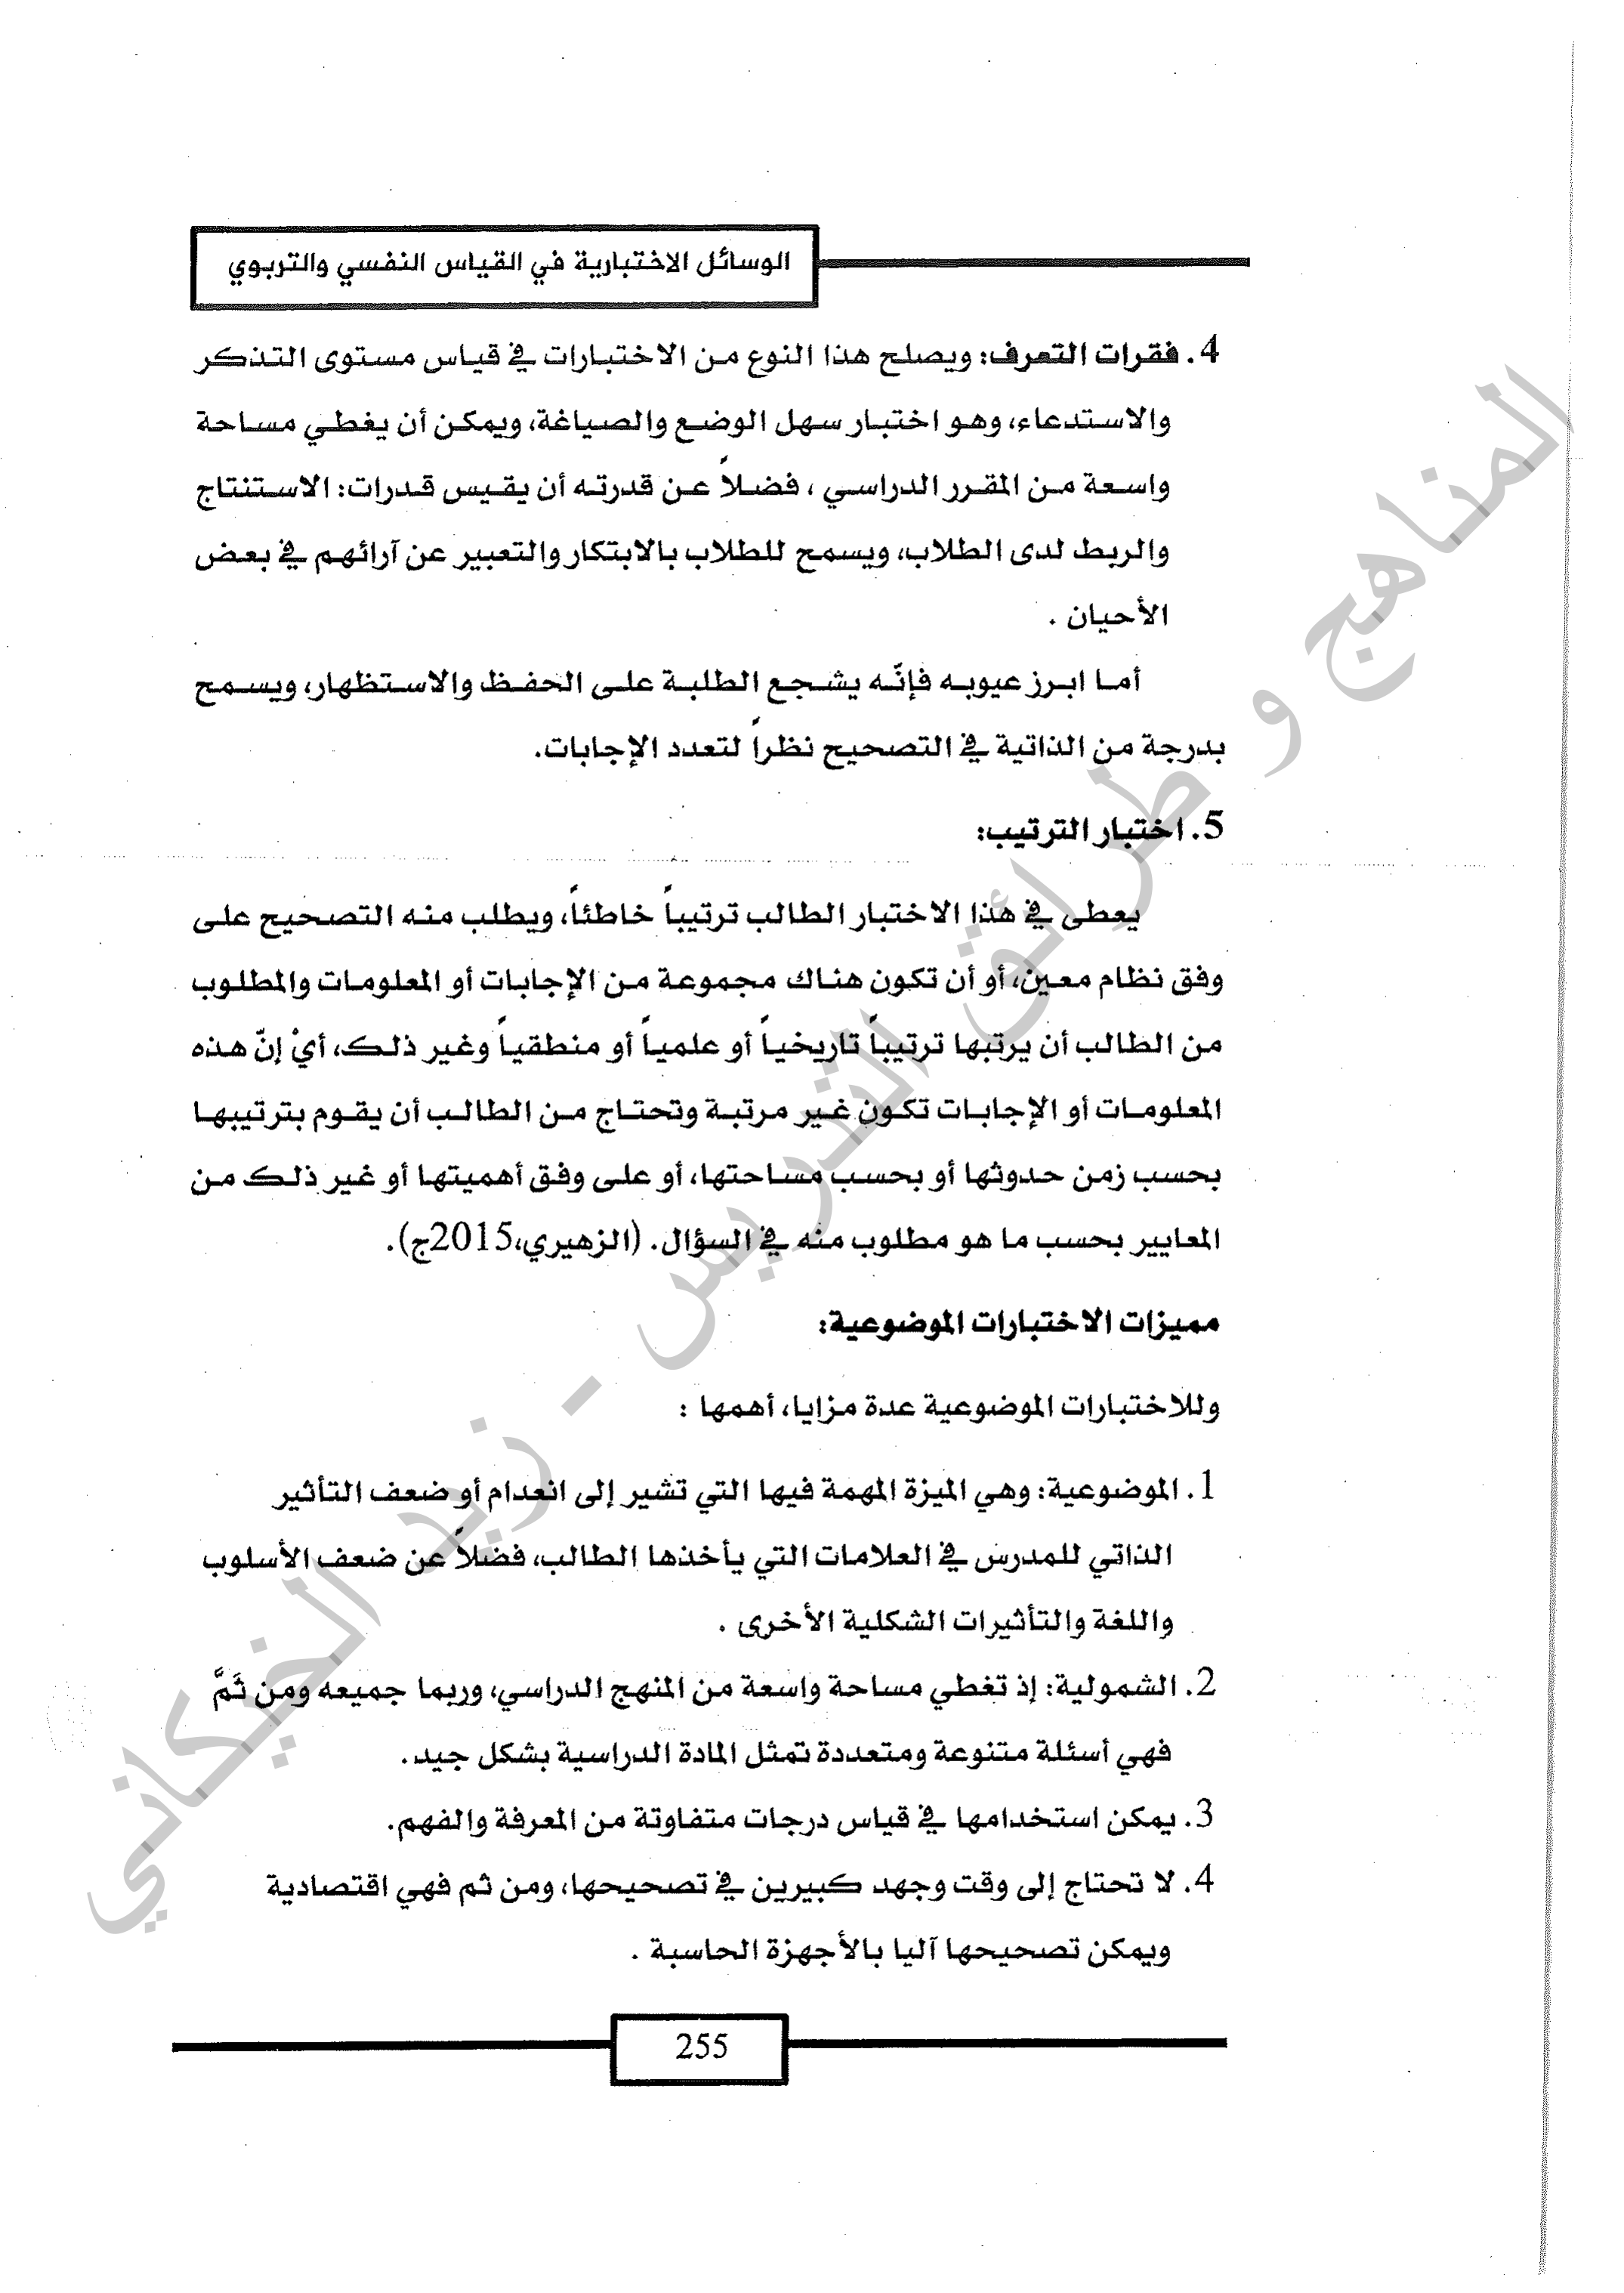 الوسائل الاختبارية في القياس النفسي والتربوي
4. فقرات التعرف: ويصلح هذا النوع من الاختبارات في قياس مستوى التذكر
والاستدعاء، وهو اختبار سهل الوضع والصياغة، ويمكن أن يغطي مساحة
واسعة من المقرر الدراسي ، فضلاً عن قدرته أن يقيس قدرات: الاستنتاج
والربط لدى الطلاب، ويسمح للطلاب بالابتكار والتعبير عن آرائهم في بعض
الأحيان .
أما ابرز عيوبه فإنّه يشجع الطلبة على الحفظ والاستظهار، ويسمح
بدرجة من الذاتية في التصحيح نظراً لتعدد الإجابات.
5. اختبار الترتيب:
يعطى في هذا الاختبار الطالب ترتيباً خاطئاً، ويطلب منه التصحيح على
وفق نظام معين، أو أن تكون هناك مجموعة من الإجابات أو المعلومات والمطلوب
من الطالب أن يرتبها ترتيباً تاريخياً أو علمياً أو منطقياً وغير ذلك، أيْ إنّ هذه
المعلومات أو الإجابات تكون غير مرتبة وتحتاج من الطالب أن يقوم بترتيبها
بحسب زمن حدوثها أو بحسب مساحتها، أو على وفق أهميتها أو غير ذلك من
المعايير بحسب ما هو مطلوب منه في السؤال. (الزهيري،2015ج).
مميزات الاختبارات الموضوعية:
وللاختبارات الموضوعية عدة مزايا، أهمها :
1. الموضوعية: وهي الميزة المهمة فيها التي تشير إلى انعدام أو ضعف التأثير
الذاتي للمدرس في العلامات التي يأخذها الطالب، فضلاً عن ضعف الأسلوب
واللغة والتأثيرات الشكلية الأخرى .
2. الشمولية: إذ تغطي مساحة واسعة من المنهج الدراسي، وربما جميعه ومن ثَمَّ
فهي أسئلة متنوعة ومتعددة تمثل المادة الدراسية بشكل جيد.
3. يمكن استخدامها في قياس درجات متفاوتة من المعرفة والفهم.
4. لا تحتاج إلى وقت وجهد كبيرين في تصحيحها، ومن ثم فهي اقتصادية
ويمكن تصحيحها آليا بالأجهزة الحاسبة .
255
المناهج و طرائق التدريس - زيد الخيكاني